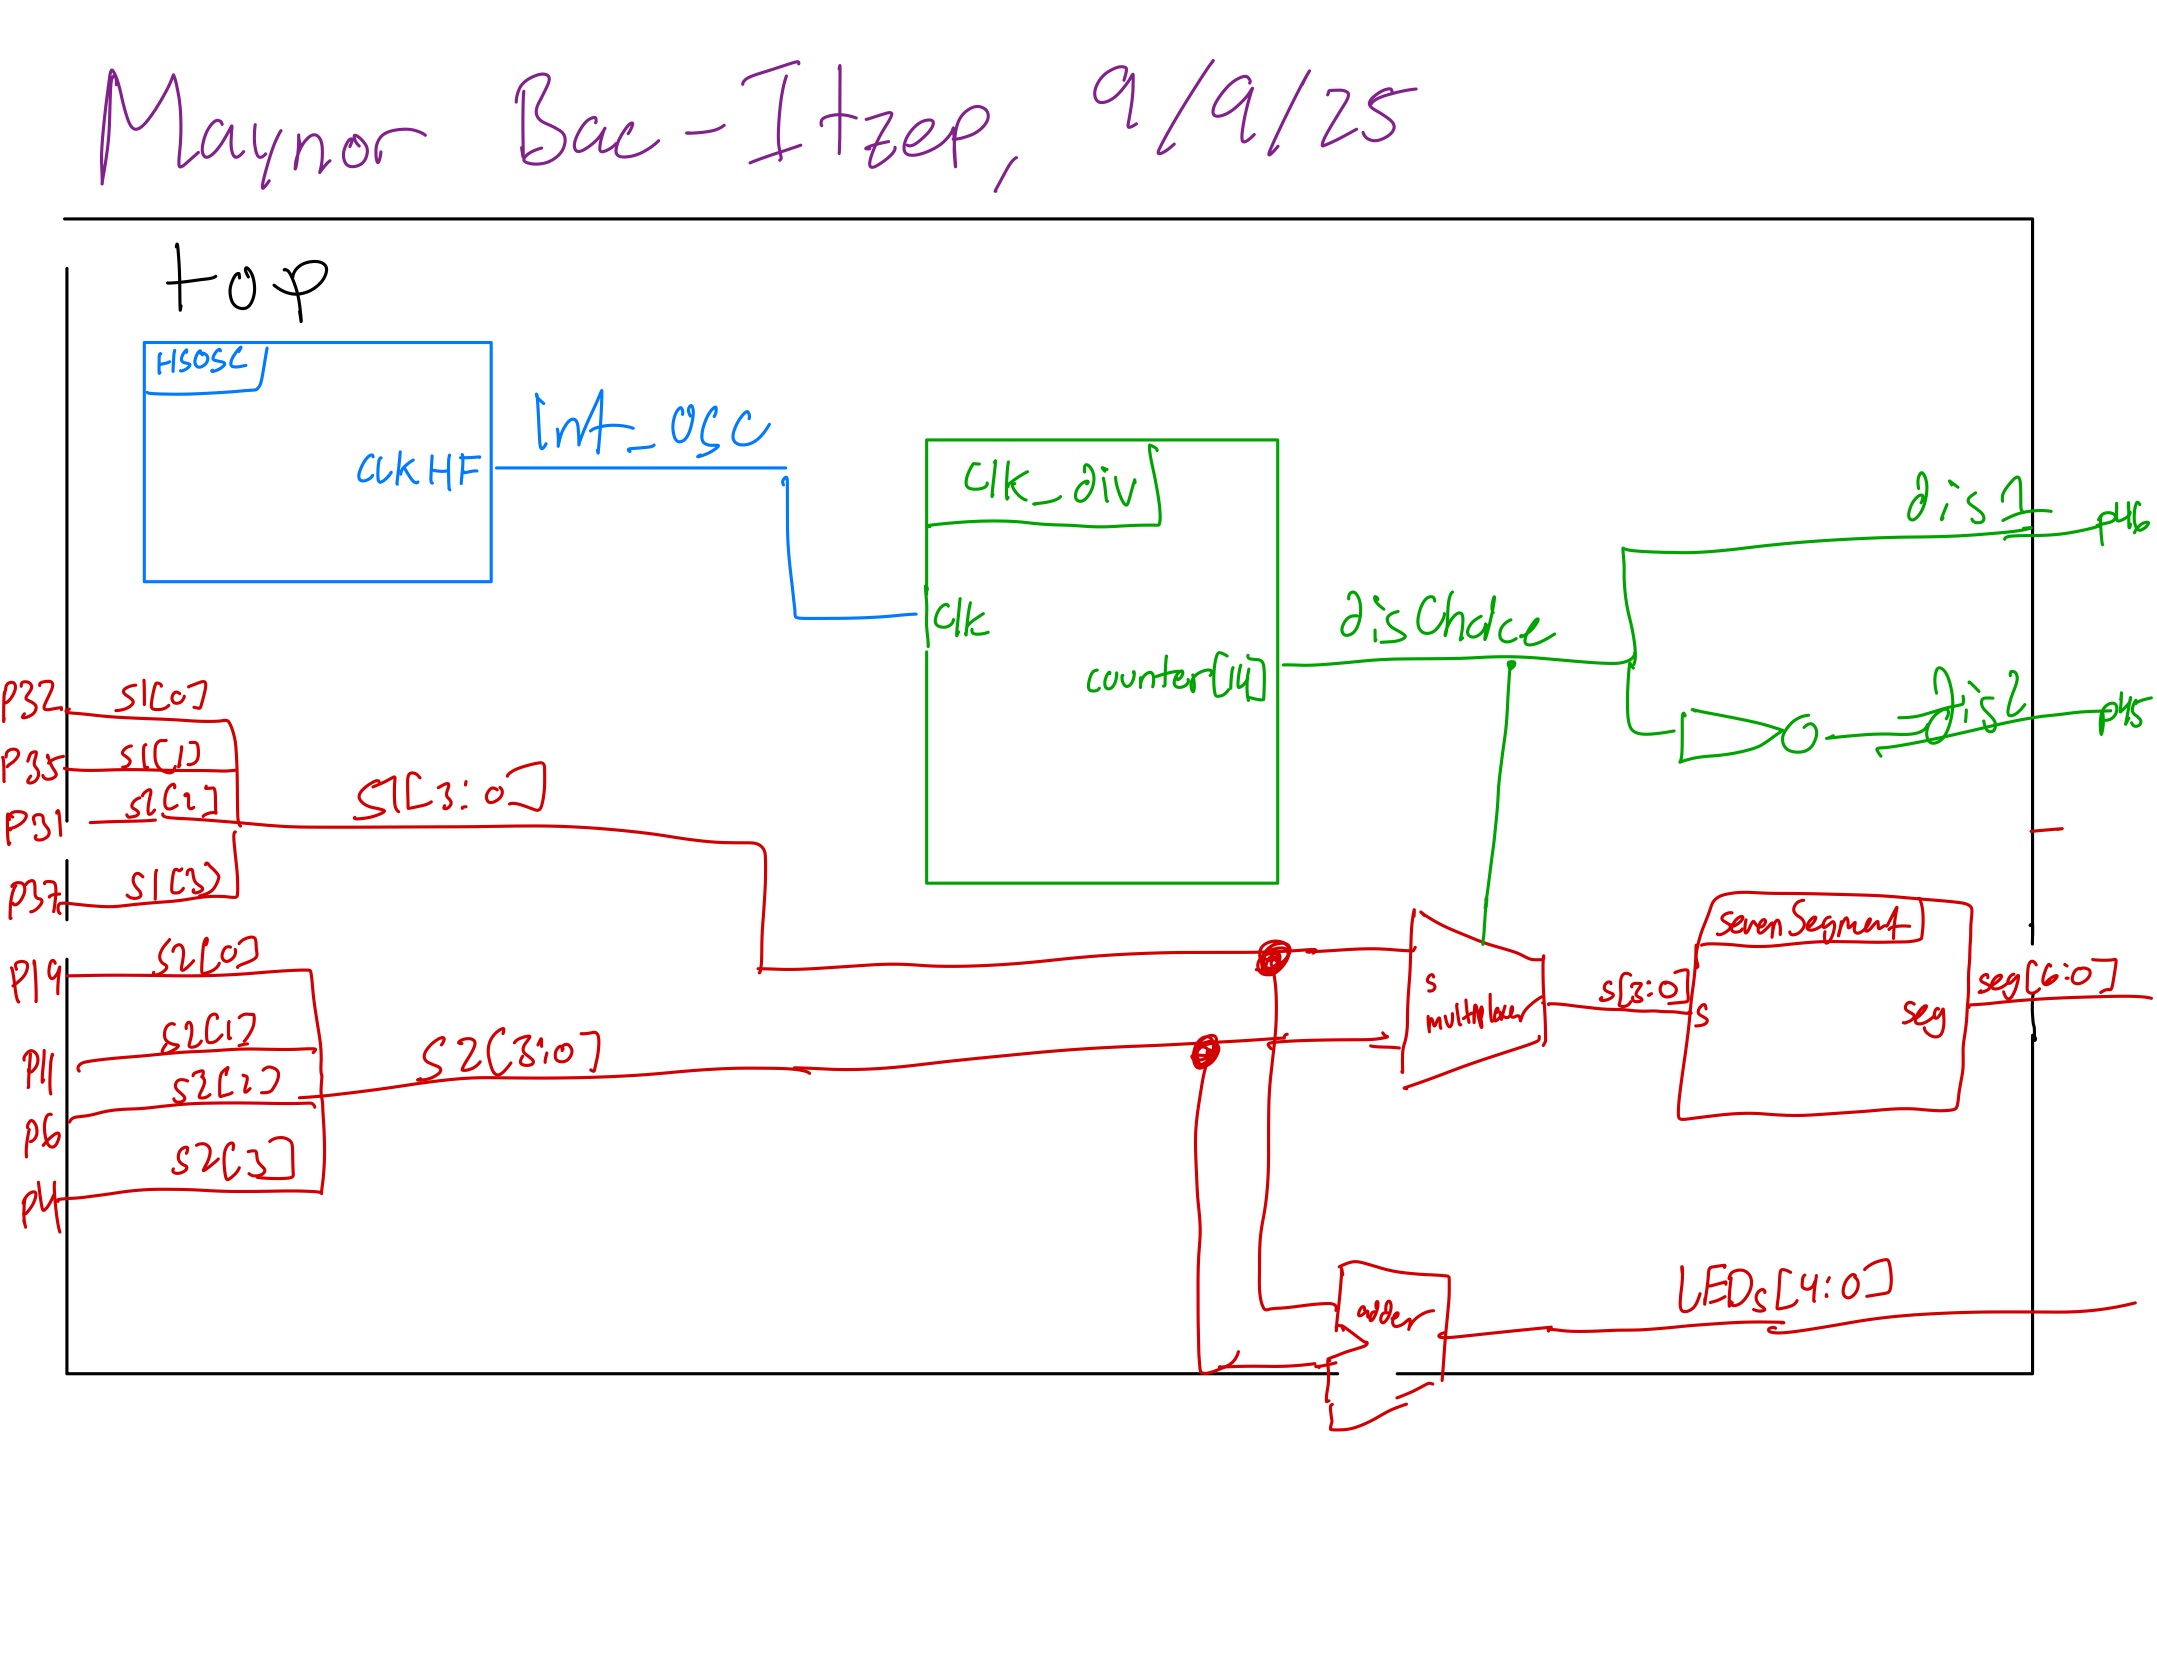 Maynor Bac-Itzep, 9/9/25
top
HSOSC
CLKHF
int_osc
clk_div
clk
counter[14]
disChoice
dis1
p46
dis2
p45
P32 s1[0]
P35 s1[1]
P31 s1[2]
P37 s1[3]
S1[3:0]
P19 s2[0]
P11 s2[1]
P6 s2[2]
P4 s2[3]
S2[3:0]
s
multiplexer
s[3:0]
sevenSegment
s
seg
seg[6:0]
adder
LEDs[4:0]